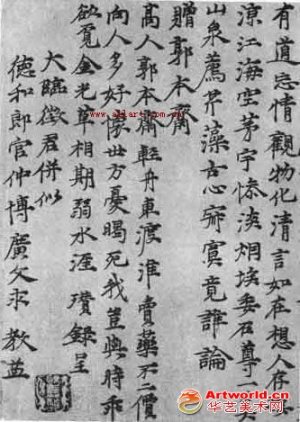 有道忘情觀物化清言如在想人存
涼江海空茅宇慘淡烟埃委石尊
山泉薦芹藻古心寂寞竟誰論
贈郭本齋
高人郭本齋輕舟東渡淮賣藥不二價
向人多好懷世方憂暍死我豈與時乖
欲覓金光草相期弱水涯 瓚錄呈
大臨徵君併似
德和郎官仲博廣文求 教益
www.aliart.com.cn
Artworld.cn
华艺美术网